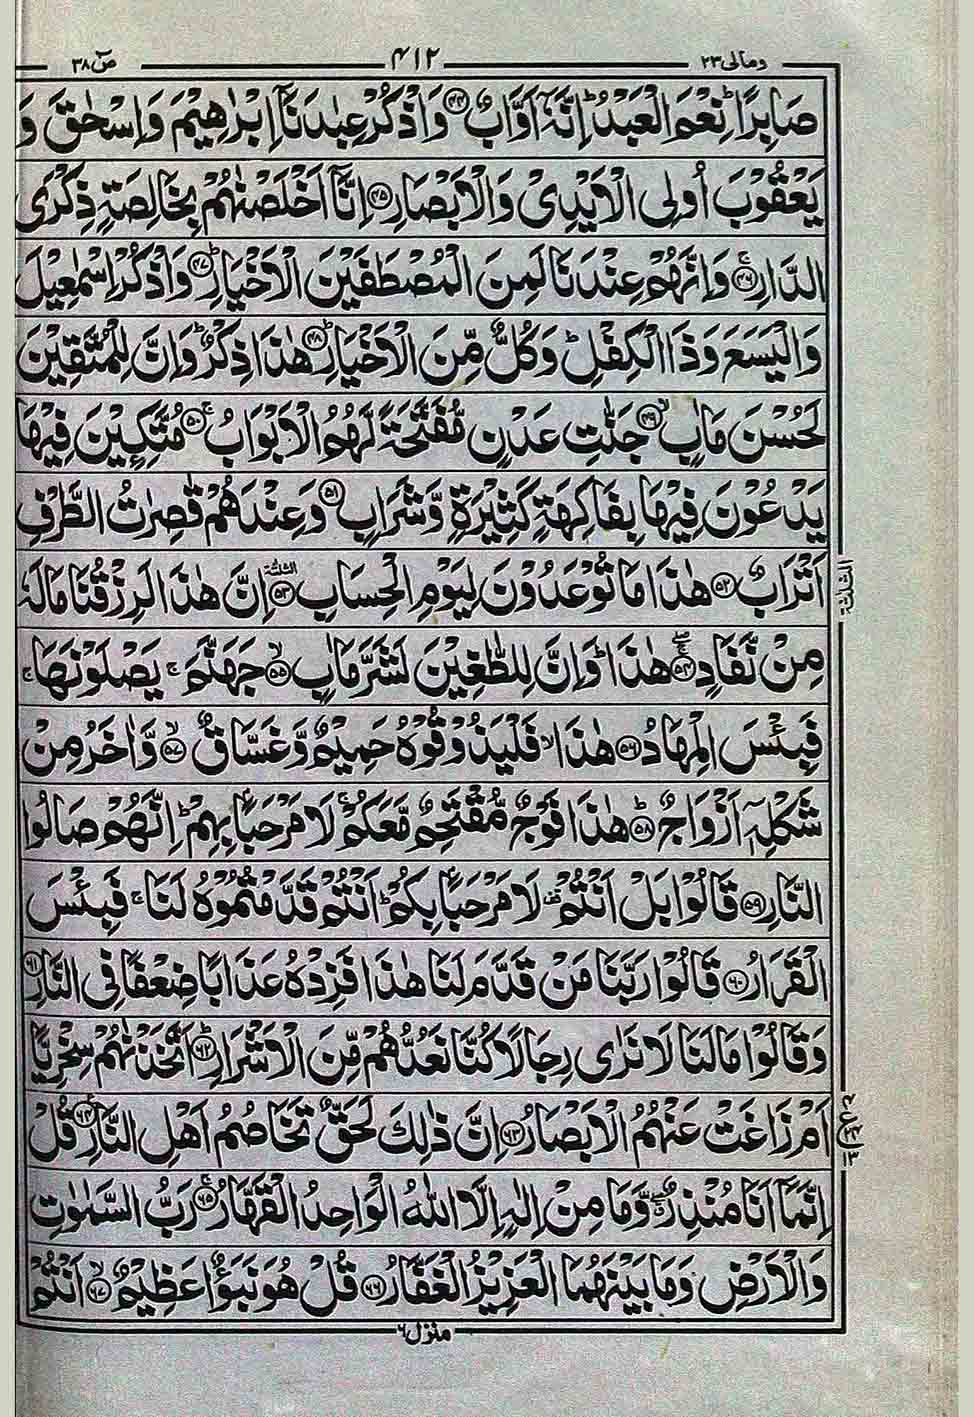 ومالی ٢٣ ۴١٢ صٓ ٣٨
صَابِرًا ؕ نِعْمَ الْعَبْدُ ؕ اِنَّهٗۤ اَوَّابٌ ﴿۴۴﴾ وَ اذْكُرْ عِبٰدَنَاۤ اِبْرٰهِیْمَ وَ اِسْحٰقَ وَ
یَعْقُوْبَ اُولِی الْاَیْدِیْ وَ الْاَبْصَارِ ﴿۴۵﴾ اِنَّاۤ اَخْلَصْنٰهُمْ بِخَالِصَةٍ ذِكْرَی
الدَّارِ ۚ﴿۴۶﴾ وَ اِنَّهُمْ عِنْدَنَا لَمِنَ الْمُصْطَفَیْنَ الْاَخْیَارِ ؕ﴿۴۷﴾ وَ اذْكُرْ اِسْمٰعِیْلَ
وَ الْیَسَعَ وَ ذَا الْكِفْلِ ؕ وَ كُلٌّ مِّنَ الْاَخْیَارِ ؕ﴿۴۸﴾ هٰذَا ذِكْرٌ ؕ وَ اِنَّ لِلْمُتَّقِیْنَ
لَحُسْنَ مَاٰبٍ ۙ﴿۴۹﴾ جَنّٰتِ عَدْنٍ مُّفَتَّحَةً لَّهُمُ الْاَبْوَابُ ۚ﴿۵۰﴾ مُتَّكِـِٕیْنَ فِیْهَا
یَدْعُوْنَ فِیْهَا بِفَاكِهَةٍ كَثِیْرَةٍ وَّ شَرَابٍ ﴿۵۱﴾ وَ عِنْدَهُمْ قٰصِرٰتُ الطَّرْفِ
اَتْرَابٌ ﴿۵۲﴾ هٰذَا مَا تُوْعَدُوْنَ لِیَوْمِ الْحِسَابِ ﴿۵۳﴾ الثلثة اِنَّ هٰذَا لَرِزْقُنَا مَا لَهٗ
الثلثة
مِنْ نَّفَادٍ ﴿۵۴﴾ هٰذَا ؕ وَ اِنَّ لِلطّٰغِیْنَ لَشَرَّ مَاٰبٍ ۙ﴿۵۵﴾ جَهَنَّمَ ۚ یَصْلَوْنَهَا ۚ
فَبِئْسَ الْمِهَادُ ﴿۵۶﴾ هٰذَا ۙ فَلْیَذُوْقُوْهُ حَمِیْمٌ وَّ غَسَّاقٌ ۙ﴿۵۷﴾ وَّ اٰخَرُ مِنْ
شَكْلِهٖۤ اَزْوَاجٌ ؕ﴿۵۸﴾ هٰذَا فَوْجٌ مُّقْتَحِمٌ مَّعَكُمْ ۚ لَا مَرْحَبًۢا بِهِمْ ؕ اِنَّهُمْ صَالُوا
النَّارِ ﴿۵۹﴾ قَالُوْا بَلْ اَنْتُمْ ۫ لَا مَرْحَبًۢا بِكُمْ ؕ اَنْتُمْ قَدَّمْتُمُوْهُ لَنَا ۚ فَبِئْسَ
الْقَرَارُ ﴿۶۰﴾ قَالُوْا رَبَّنَا مَنْ قَدَّمَ لَنَا هٰذَا فَزِدْهُ عَذَابًا ضِعْفًا فِی النَّارِ ﴿۶۱﴾
وَ قَالُوْا مَا لَنَا لَا نَرٰی رِجَالًا كُنَّا نَعُدُّهُمْ مِّنَ الْاَشْرَارِ ؕ﴿۶۲﴾ اَتَّخَذْنٰهُمْ سِخْرِیًّا
اَمْ زَاغَتْ عَنْهُمُ الْاَبْصَارُ ﴿۶۳﴾ اِنَّ ذٰلِكَ لَحَقٌّ تَخَاصُمُ اَهْلِ النَّارِ ﴿۶۴﴾ قُلْ
اِنَّمَاۤ اَنَا مُنْذِرٌ وَّ مَا مِنْ اِلٰهٍ اِلَّا اللّٰهُ الْوَاحِدُ الْقَهَّارُ ۚ﴿۶۵﴾ رَبُّ السَّمٰوٰتِ
وَ الْاَرْضِ وَ مَا بَیْنَهُمَا الْعَزِیْزُ الْغَفَّارُ ﴿۶۶﴾ قُلْ هُوَ نَبَؤٌا عَظِیْمٌ ۙ﴿۶۷﴾ اَنْتُمْ
منزل ۶